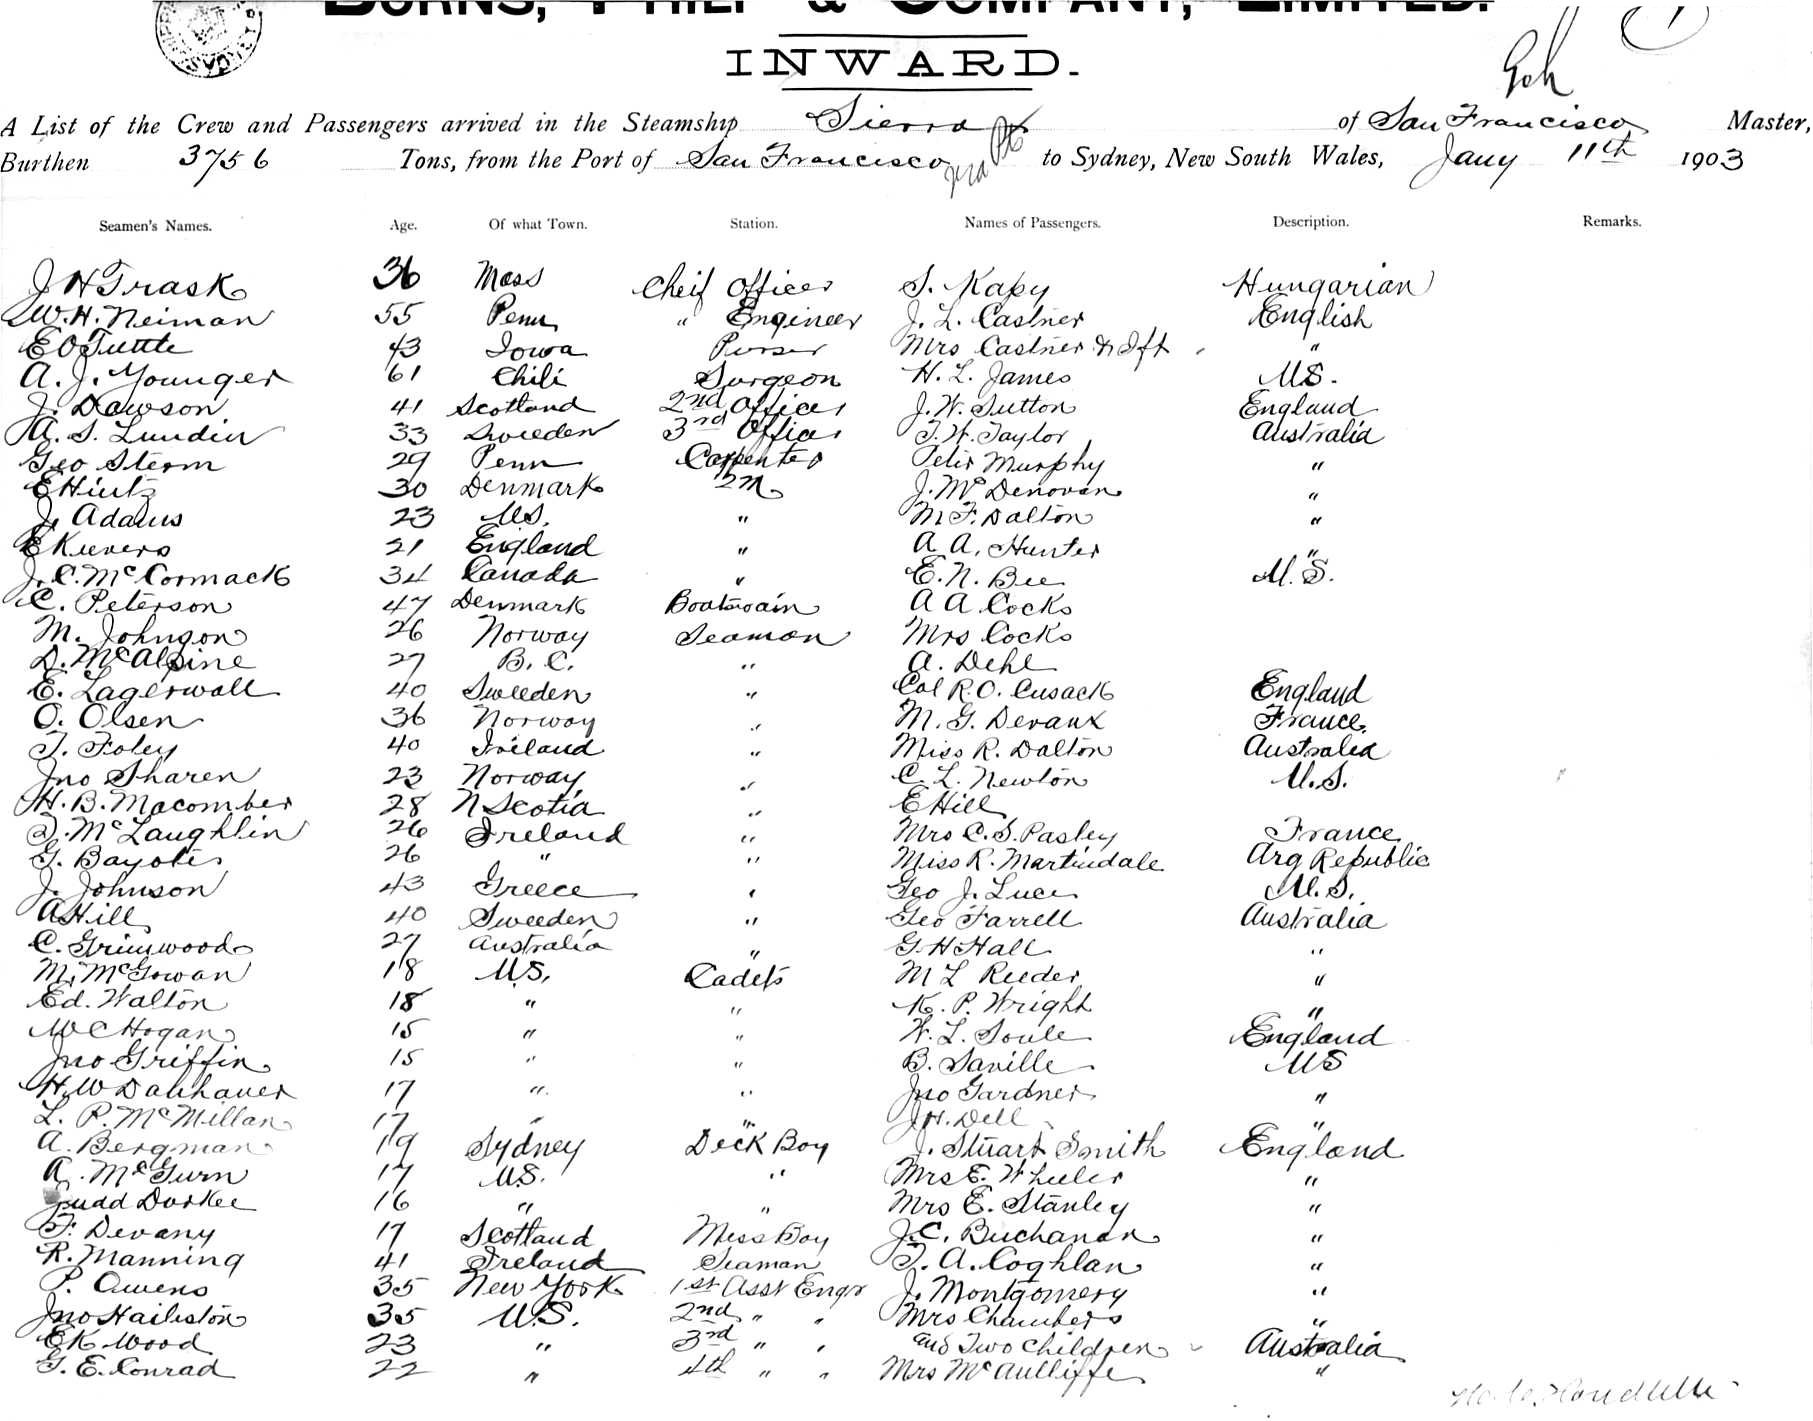 BURNS, PHILP & COMPANY, LIMITED.
INWARD.
A List of the Crew and Passengers arrived in the Steamship Sierra of San Francisco Master,
Burthen 3756 Tons, from the Port of San Francisco to Sydney, New South Wales, Jany 11th 1903
Seamen's Names. Age. Of what Town. Station. Names of Passengers. Description. Remarks.
J H Trask 36 Mass Cheif Officer S. Kapy Hungarian
W. H. Neiman 55 Penn " Engineer J. L. Castner English
E O Tuttle 43 Iowa Purser Mrs Castner & Ift "
A. J. Younger 61 Chili Surgeon H. L. James U.S.
J. Dawson 41 Scotland 2nd Officer J. W. Sutton England
A. S. Lundin 33 Sweeden 3rd Officer T. W. Taylor Australia
Geo Sterm 29 Penn Carpenter Peter Murphy "
E Hintz 30 Denmark 2M J. Mc Denovan "
J. Adams 23 U.S. " M F. Dalton "
E Kuvers 21 England " A A. Hunter "
J. C. Mc Cormack 34 Canada " E. N. Bee U. S.
C. Peterson 47 Denmark Boatswain A A Cocks
M. Johnson 26 Norway Seaman Mrs Cocks
D. McAlpine 27 B. C. " A. Dehl
E. Lagerwall 40 Sweeden " Col R. O. Cusack England
O. Olsen 36 Norway " M. G. Devaux France
T. Foley 40 Ireland " Miss R. Dalton Australia
Jno Sharen 23 Norway " C. L. Newton U. S.
H. B. Macomber 28 N Scotia " E Hill
T. Mc Laughlin 26 Ireland " Mrs C. S. Pasley France
G. Bayotes 26 " " Miss R. Martindale Arg Republic
J. Johnson 43 Greece " Geo J. Luce U. S.
A Hill 40 Sweeden " Geo Farrell Australia
C. Grimwood 27 Australia " G. H Hall "
M. McGowan 18 U.S. Cadets M L Reeder "
Ed. Walton 18 " " K. P. Wright "
W C Hogan 15 " " W. L. Soule England
Jno Griffin 15 " " B. Saville US
H. W Danhauer 17 " " Jno Gardner "
L. P. Mc Millan 17 " " J H. Dell "
A. Bergman 19 Sydney Deck Boy J. Stuart Smith England
A. McGurn 17 U.S. " Mrs E. Wheeler "
Judd Dorkee 16 " " Mrs E. Stanley "
F. Devany 17 Scotland Mess Boy J. C. Buchanan "
R. Manning 41 Ireland Seaman T. A. Coghlan "
P. Owens 35 New York 1st Asst Engr J. Montgomery "
Jno Haileston 35 U.S. 2nd " " Mrs Chambers "
E K Wood 23 " 3rd " " and Two Children Australia
G. E. Conrad 22 " 4th " " Mrs McAulliffe "